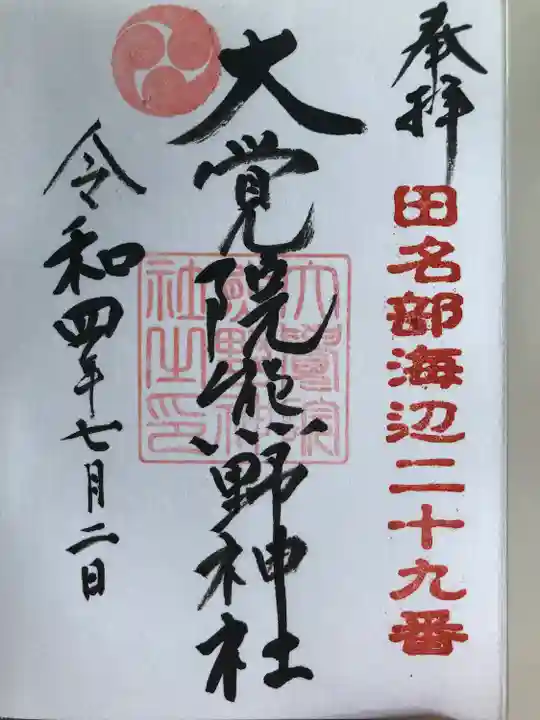 奉拝
田名部海辺二十九番
大覚院熊野神社
大覺院熊野神社之印
令和四年七月二日